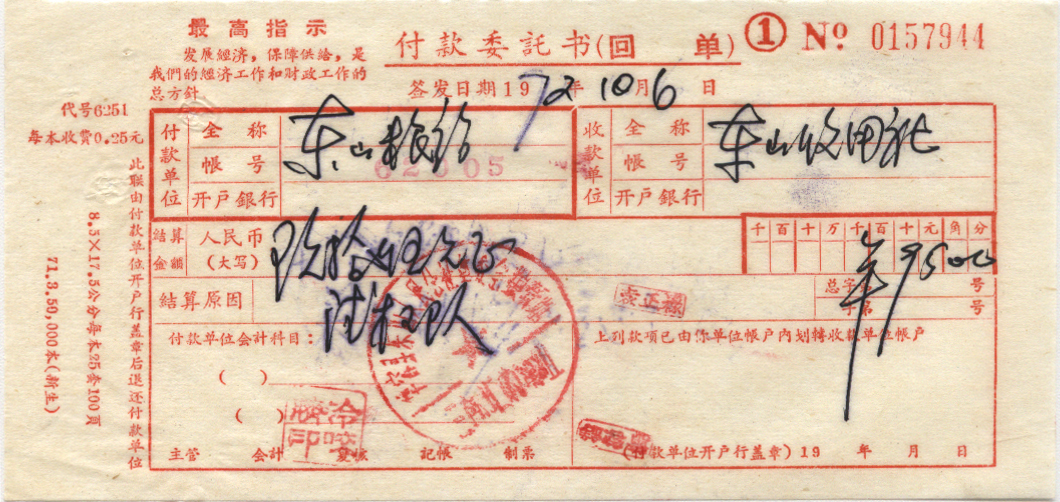 最高指示
发展經济，保障供給，是
我們的經济工作和財政工作的
总方針
付款委託书(回 单) ① Nº 0157944
签发日期1972年10月6日
代号6251
每本收費0.25元
付款单位
全称 东山粮站
帳号 62505
开户銀行
收款单位
全称 东山收用社
帳号
开户銀行
結算金額
人民币(大写) 玖拾伍元正
千百十万千百十元角分
¥9500
結算原因
总字 号
字第 号
袁正禄
付款单位会計科目：
上列款項已由你单位帳户内划轉收款单位帳户
( )
( )
主管 会計 复核 記帳 制票
(付款单位开户行盖章)19 年 月 日
此联由付款单位开户行盖章后退还付款单位
8.5×17.5公分每本25套100頁
71.3.50,000本(新生)